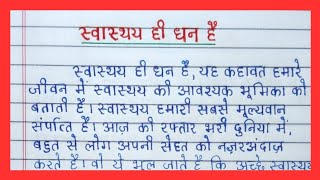 स्वास्थय ही धन है
स्वास्थय ही धन है, यह कहावत हमारे
जीवन में स्वास्थय की आवश्यक भूमिका को
बताती है। स्वास्थय हमारी सबसे मूल्यवान
संपत्ति है। आज की रफ्तार भरी दुनिया में,
बहुत से लोग अपनी सेहत को नज़रअंदाज़
करते हैं। वो ये भूल जाते है कि अच्छे स्वास्थय